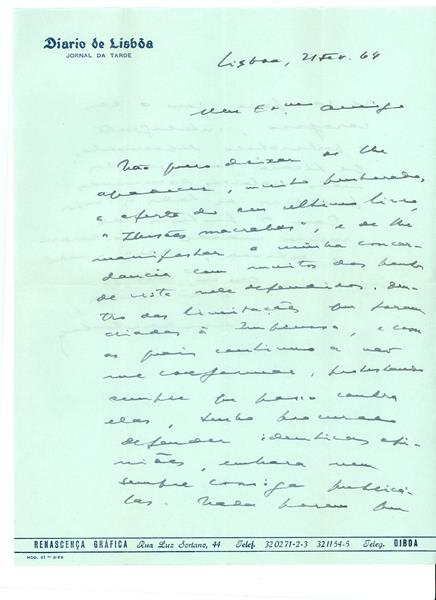 Diario de Lisbôa
JORNAL DA TARDE
Lisboa, 21 Fev. 64
Meu Ex.mo Amigo
Não quero deixar de lhe
agradecer, muito penhorado,
a oferta do seu ultimo livro,
"Ilusões macabras", e de lhe
manifestar a minha concor-
dancia com muitos dos pontos
de vista nele defendidos. Den-
tro das limitações que foram
criadas à Imprensa, e com
as quais continuo a não
me conformar, protestando
sempre que posso contra
elas, tenho procurado
defender identicas opi-
niões, embora nem
sempre consiga publicá-
las. Nada porem
RENASCENÇA GRÁFICA Rua Luz Soriano, 44 Telef. 3 20 27 1-2-3 32 11 54-5 Teleg. DIBOA